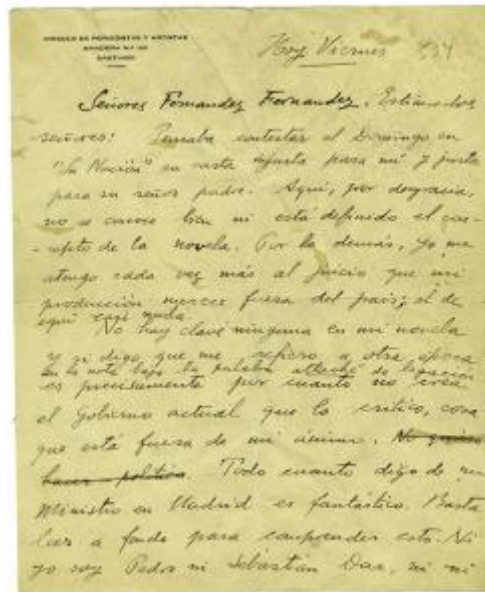 CIRCULO DE PERIODISTAS Y ARTISTAS
SANTIAGO
Hoy Viernes 834
Señores Fernandez Fernandez. Estimados
señores: Pensaba contestar el Domingo en
"La Nación" su carta injusta para mí y justa
para su señor padre. Aquí, por desgracia,
no se conoce bien ni está definido el con-
-cepto de la novela. Por lo demás, yo me
atengo cada vez más al juicio que mi
producción merece fuera del país; el de
aquí casi nada.
No hay clave ninguna en mi novela
y si digo que me refiero a otra época
en la nota bajo la palabra attaché de legación
es precisamente por cuanto no crea
el Gobierno actual que lo critico, cosa
que está fuera de mi ánimo. No quiero
hacer política. Todo cuanto digo de un
Ministro en Madrid es fantástico. Basta
leer a fondo para comprender esto. Ni
yo soy Pedro ni Sebastián Dax, ni mi